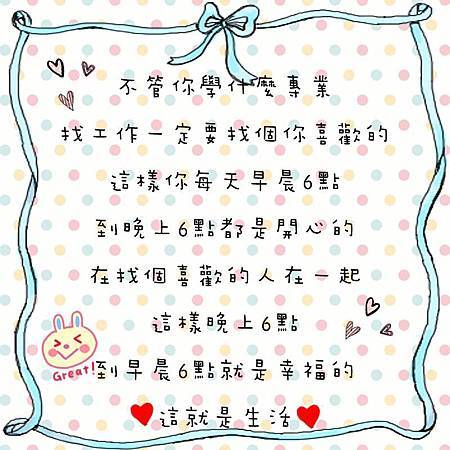 不管你學什麼專業
找工作一定要找個你喜歡的
這樣你每天早晨6點
到晚上6點都是開心的
在找個喜歡的人在一起
這樣晚上6點
Great!
到早晨6點就是幸福的
這就是生活